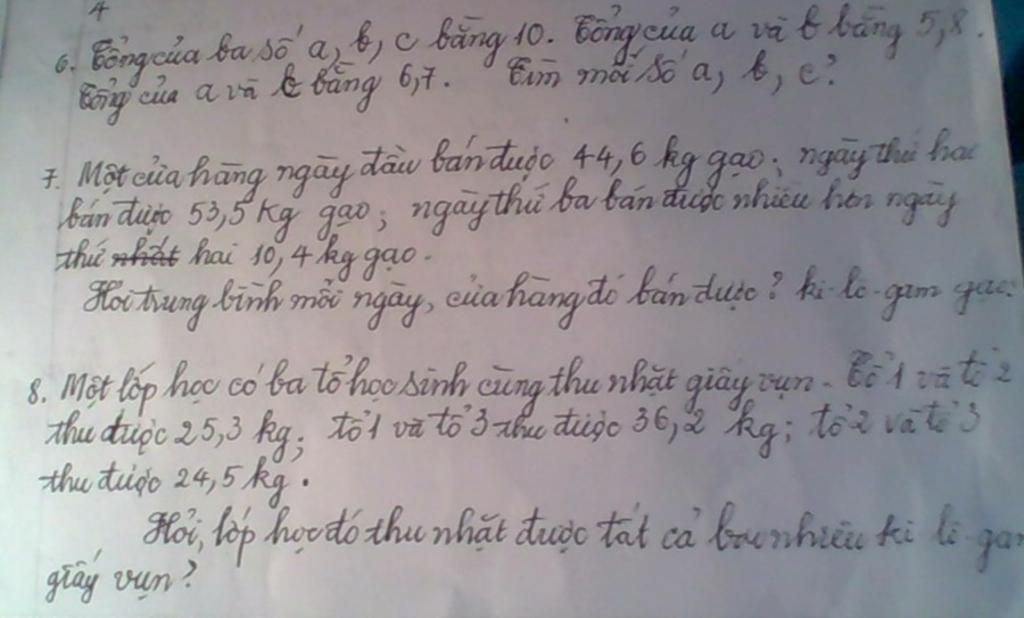 4
6. Tổng của ba số a, b, c bằng 10. Tổng của a và b bằng 5,8.
Tổng của a và c bằng 6,7. Tìm mỗi số a, b, c?
7. Một cửa hàng ngày đầu bán được 44,6 kg gạo; ngày thứ hai
bán được 53,5 kg gạo; ngày thứ ba bán được nhiều hơn ngày
thứ nhất hai 10,4 kg gạo.
Hỏi trung bình mỗi ngày, cửa hàng đó bán được? ki-lô-gam gạo.
8. Một lớp học có ba tổ học sinh cùng thu nhặt giấy vụn. Tổ 1 và tổ 2
thu được 25,3 kg; tổ 1 và tổ 3 thu được 36,2 kg; tổ 2 và tổ 3
thu được 24,5 kg.
Hỏi, lớp học đó thu nhặt được tất cả bao nhiêu ki-lô-gam
giấy vụn?